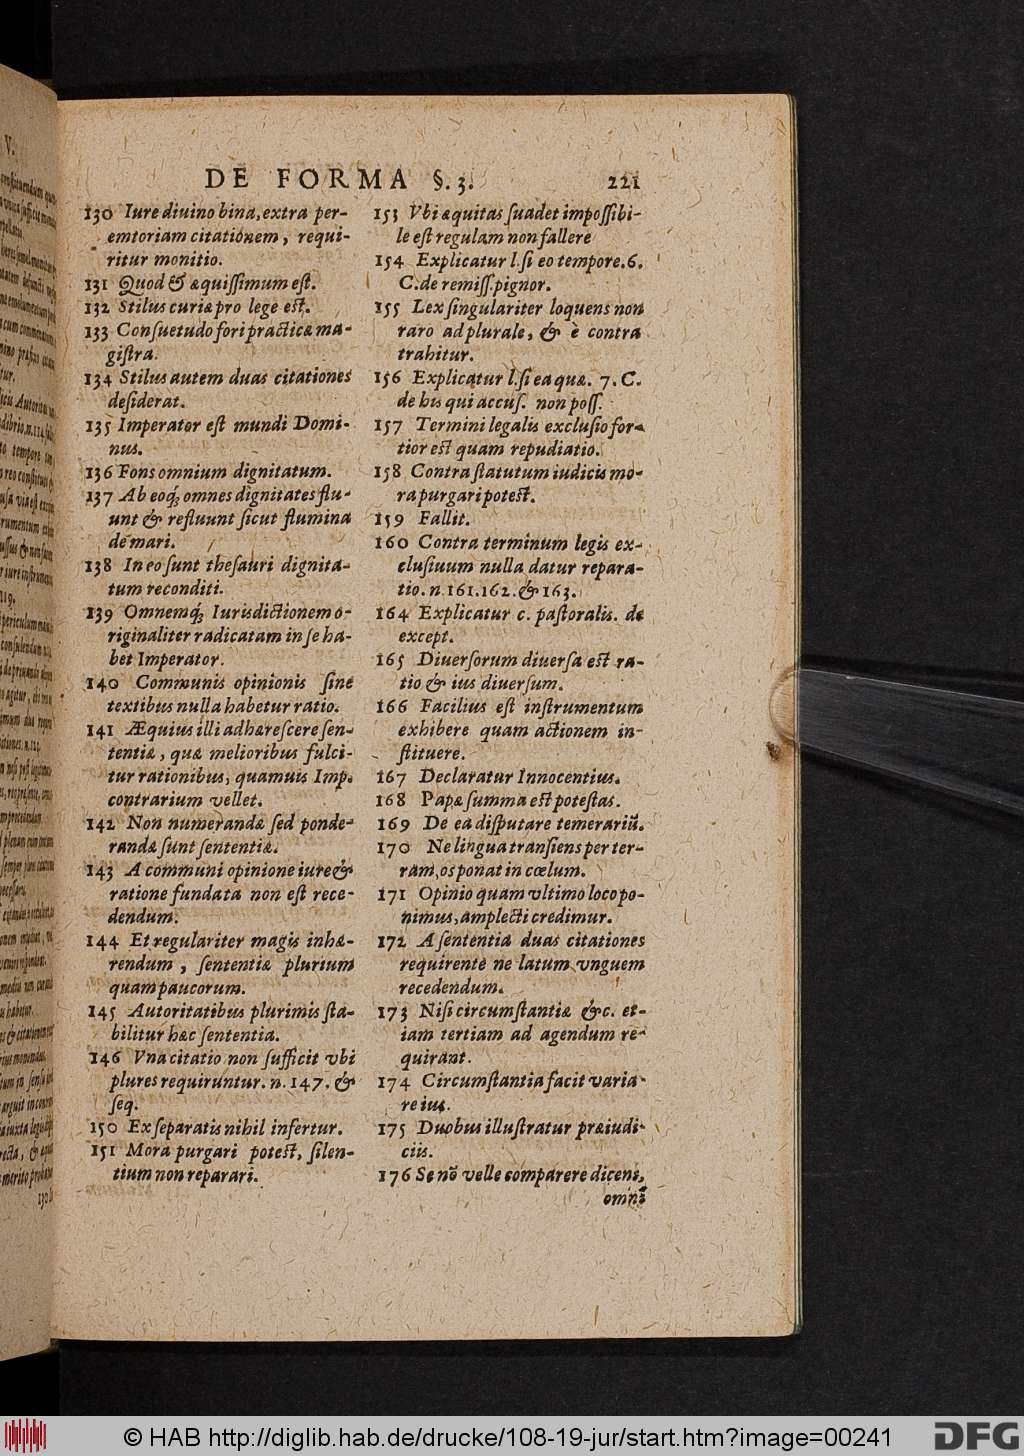 DE FORMA §. 3. 221
130 Iure diuino bina, extra per-
emtoriam citationem, requi-
ritur monitio.
131 Quod & æquissimum est.
132 Stilus curiæ pro lege est.
133 Consuetudo fori practicæ ma-
gistra.
134 Stilus autem duas citationes
desiderat.
135 Imperator est mundi Domi-
nus.
136 Fons omnium dignitatum.
137 Ab eoq́; omnes dignitates flu-
unt & refluunt sicut flumina
de mari.
138 In eo sunt thesauri dignita-
tum reconditi.
139 Omnemq́; Iurisdictionem o-
riginaliter radicatam in se ha-
bet Imperator.
140 Communis opinionis sine
textibus nulla habetur ratio.
141 Æquius illi adhærescere sen-
tentiæ, quæ melioribus fulci-
tur rationibus, quamuis Imp.
contrarium vellet.
142 Non numerandæ sed ponde-
randæ sunt sententiæ.
143 A communi opinione iure &
ratione fundata non est rece-
dendum.
144 Et regulariter magis inhæ-
rendum, sententiæ plurium
quam paucorum.
145 Autoritatibus plurimis sta-
bilitur hæc sententia.
146 Vna citatio non sufficit vbi
plures requiruntur. n. 147. &
seq.
150 Ex separatis nihil infertur.
151 Mora purgari potest, silen-
tium non reparari.
153 Vbi æquitas suadet impossibi-
le est regulam non fallere
154 Explicatur l. si eo tempore. 6.
C. de remiss. pignor.
155 Lex singulariter loquens non
raro ad plurale, & è contra
trahitur.
156 Explicatur l. si ea quæ. 7. C.
de his qui accus. non poss.
157 Termini legalis exclusio for-
tior est quam repudiatio.
158 Contra statutum iudicis mo-
ra purgari potest.
159 Fallit.
160 Contra terminum legis ex-
clusiuum nulla datur repara-
tio. n. 161. 162. & 163.
164 Explicatur c. pastoralis. de
except.
165 Diuersorum diuersa est ra-
tio & ius diuersum.
166 Facilius est instrumentum
exhibere quam actionem in-
stituere.
167 Declaratur Innocentius.
168 Papæ summa est potestas.
169 De ea disputare temerariũ.
170 Ne lingua transiens per ter-
ram, os ponat in cœlum.
171 Opinio quam vltimo loco po-
nimus, amplecti credimur.
172 A sententia duas citationes
requirente ne latum vnguem
recedendum.
173 Nisi circumstantiæ &c. et-
iam tertiam ad agendum re-
quirant.
174 Circumstantia facit varia-
re ius.
175 Duobus illustratur præiudi-
ciis.
176 Se nõ velle comparere dicens,
omnĩ
© HAB http://diglib.hab.de/drucke/108-19-jur/start.htm?image=00241
DFG